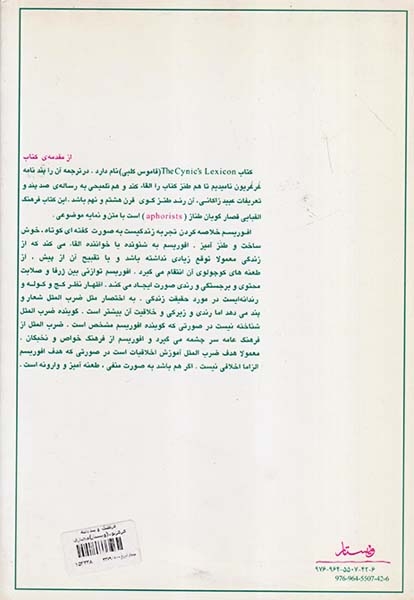 از مقدمه‌ی کتاب
کتاب The Cynic's Lexicon (قاموس کلبی) نام دارد . درترجمه آن را پند نامه
غرغریون نامیدیم تا هم طنز کتاب را القاء کند و هم تلمیحی به رساله‌ی صد پند و
تعریفات عبید زاکانی، آن رند طنز گوی قرن هشتم و نهم باشد . این کتاب فرهنگ
الفبایی قصار گویان طناز (aphorists) است با متن و نمایه موضوعی .
افوریسم خلاصه کردن تجربه زندگیست به صورت گفته ای کوتاه، خوش
ساخت و طنز آمیز . افوریسم به شنونده یا خواننده القاء می کند که از
زندگی معمولا توقع زیادی نداشته باشد و با تقبیح آن از پیش ، از
طعنه های کوچولوی آن انتقام می گیرد . افوریسم توازنی بین ژرفا و صلابت
محتوی و برجستگی و رندی صورت ایجاد می کند . اظهار نظر کج و کوله و
رندانه‌ایست در مورد حقیقت زندگی . به اختصار مثل ضرب المثل شعار و
پند می دهد اما رندی و زیرکی و خلاقیت آن بیشتر است . گوینده ضرب المثل
شناخته نیست در صورتی که گوینده افوریسم مشخص است . ضرب المثل از
فرهنگ عامه سر چشمه می گیرد و افوریسم از فرهنگ خواص و نخبگان .
معمولا هدف ضرب المثل آموزش اخلاقیات است در صورتی که هدف افوریسم
الزاما اخلاقی نیست . اگر هم باشد به صورت منفی ، طعنه آمیز و وارونه است .
ویستار
۹۷۶-۹۶۴-۵۵۰۷-۴۲-۶
976-964-5507-42-6